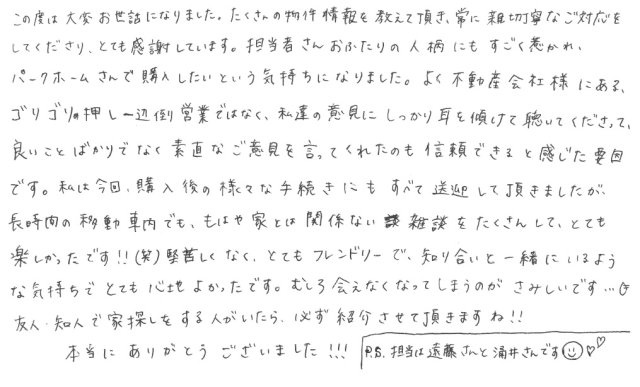 この度は大変お世話になりました。たくさんの物件情報を教えて頂き、常に親切丁寧なご対応を
してくださり、とても感謝しています。担当者さんおふたりの人柄にもすごく惹かれ、
パークホームさんで購入したいという気持ちになりました。よく不動産会社様にある、
ゴリゴリの押し一辺倒営業ではなく、私達の意見にしっかり耳を傾けて聴いてくださって、
良いことばかりでなく素直なご意見を言ってくれたのも信頼できると感じた要因
です。私は今回、購入後の様々な手続きにもすべて送迎して頂きましたが、
長時間の移動車内でも、もはや家とは関係ない雑談をたくさんして、とても
楽しかったです!!(笑)堅苦しくなく、とてもフレンドリーで、知り合いと一緒にいるよう
な気持ちでとても心地よかったです。むしろ会えなくなってしまうのがさみしいです…
友人・知人で家探しをする人がいたら、必ず紹介させて頂きますね!!
本当にありがとうございました!!!
P.S. 担当は遠藤さんと涌井さんです